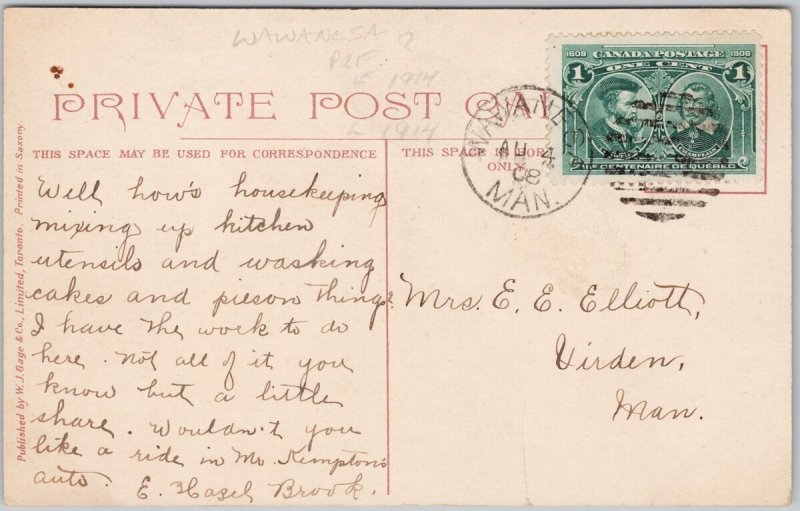 WAWANESA ?
P2F
E 1914
L 1914
PRIVATE POST CA
THIS SPACE MAY BE USED FOR CORRESPONDENCE
THIS SPACE FOR
ONLY.
1608 CANADA POSTAGE 1908
ONE CENT
1 1
CENTENAIRE DE QUÉBEC
WAWANESA
AU 4
08
MAN.
Well how's housekeeping
mixing up kitchen
utensils and washing
cakes and pieson things
I have the work to do
here. Not all of it you
know but a little
share. Wouldn't you
like a ride in Mr. Kempton's
auto.
E. Hazel Brook.
Mrs. E. E. Elliott,
Virden,
Man.
Published by W. J. Gage & Co., Limited, Toronto. Printed in Saxony